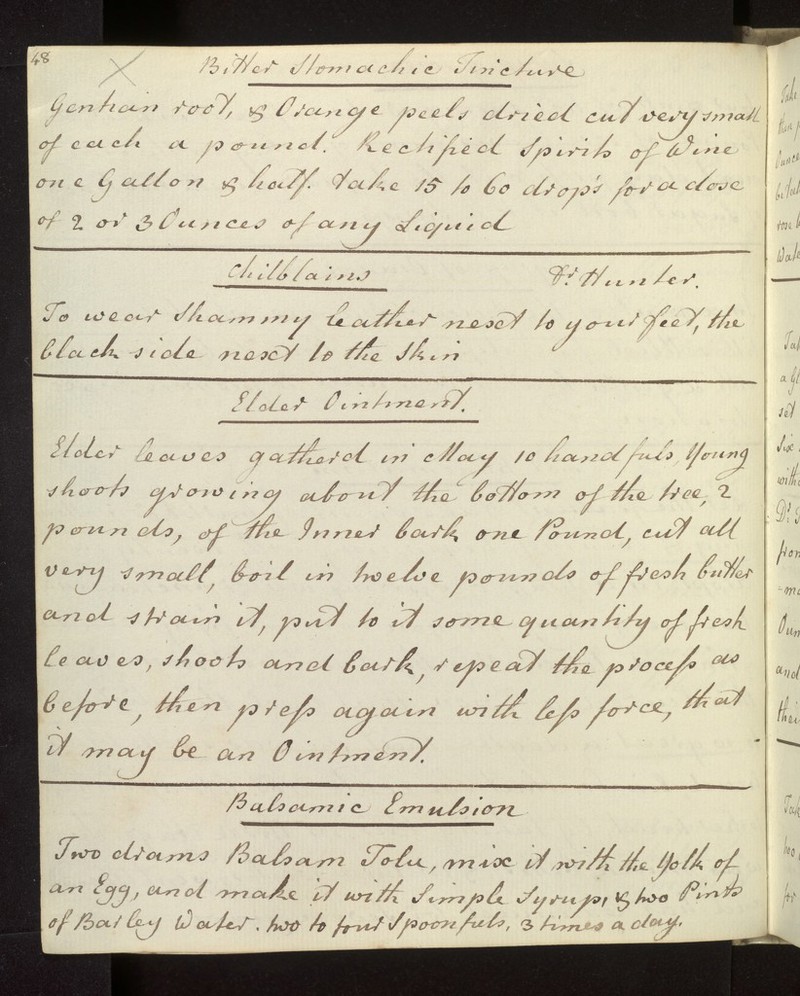 48
Bitter Stomachic Tincture
Gentian root, & Orange peels dried cut very small
of each a pound. Rectified Spirits of Wine
one Gallon & half. Take 15 to 60 drop's for a dose
of 2 or 3 Ounces of any Liquid
Chilblains Dr. Hunter.
To wear Shammy leather next to your feet, the
black side next to the Skin
Elder Ointment.
Elder leaves gatherd in May 10 handfuls, Young
shoots growing about the bottom of the tree, 2
pounds, of the Inner bark one Pound, cut all
very small, boil in twelve pounds of fresh butter
and strain it, put to it some quantity of fresh
leaves, shoots and bark, repeat the process as
before, then press again with less force, that
it may be an Ointment.
Balsamic Emulsion
Two drams Balsam Tolu, mix it with the Yolk of
an Egg, and make it with Simple Syrup, & two Pints
of Barley Water. two to four Spoonfuls, 3 times a day.